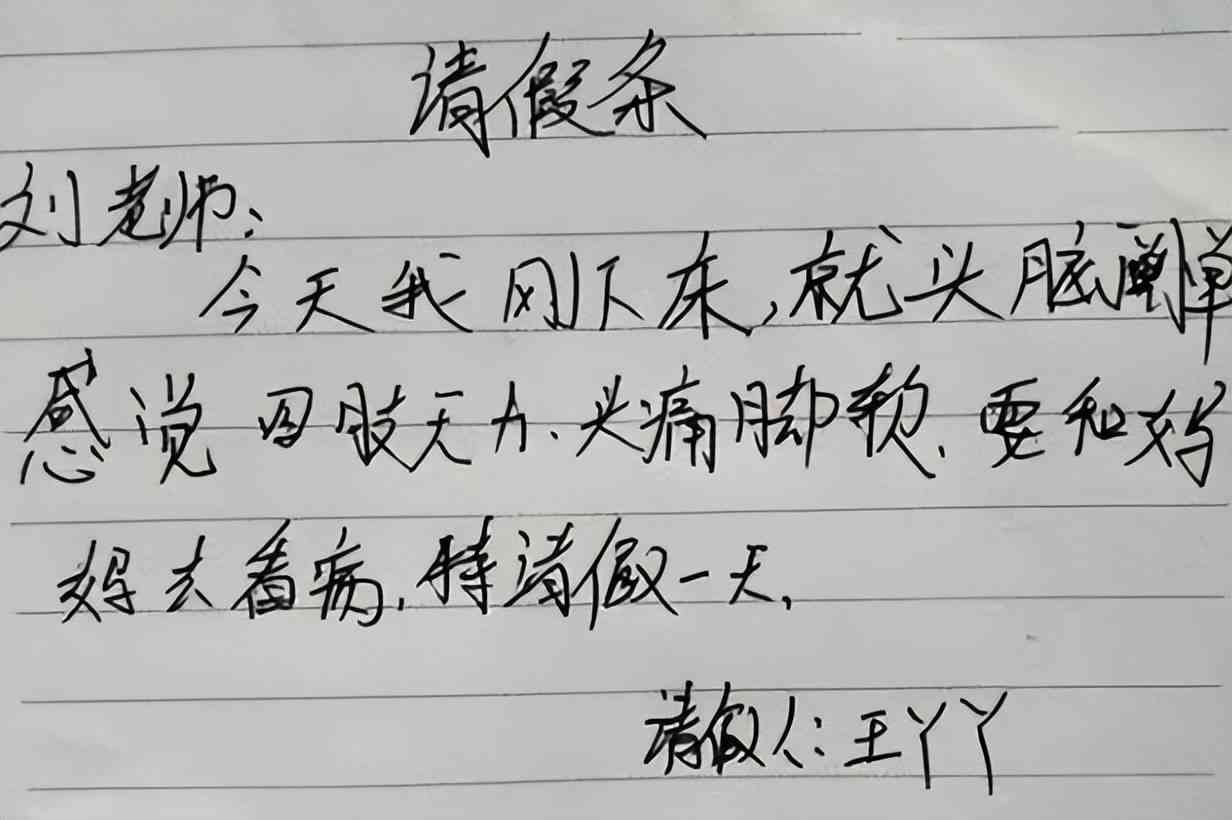 请假条
刘老师:
今天我刚下床,就头脑
感觉四肢无力、头痛脚软、要和妈
妈去看病,特请假一天,
请假人:王丫丫